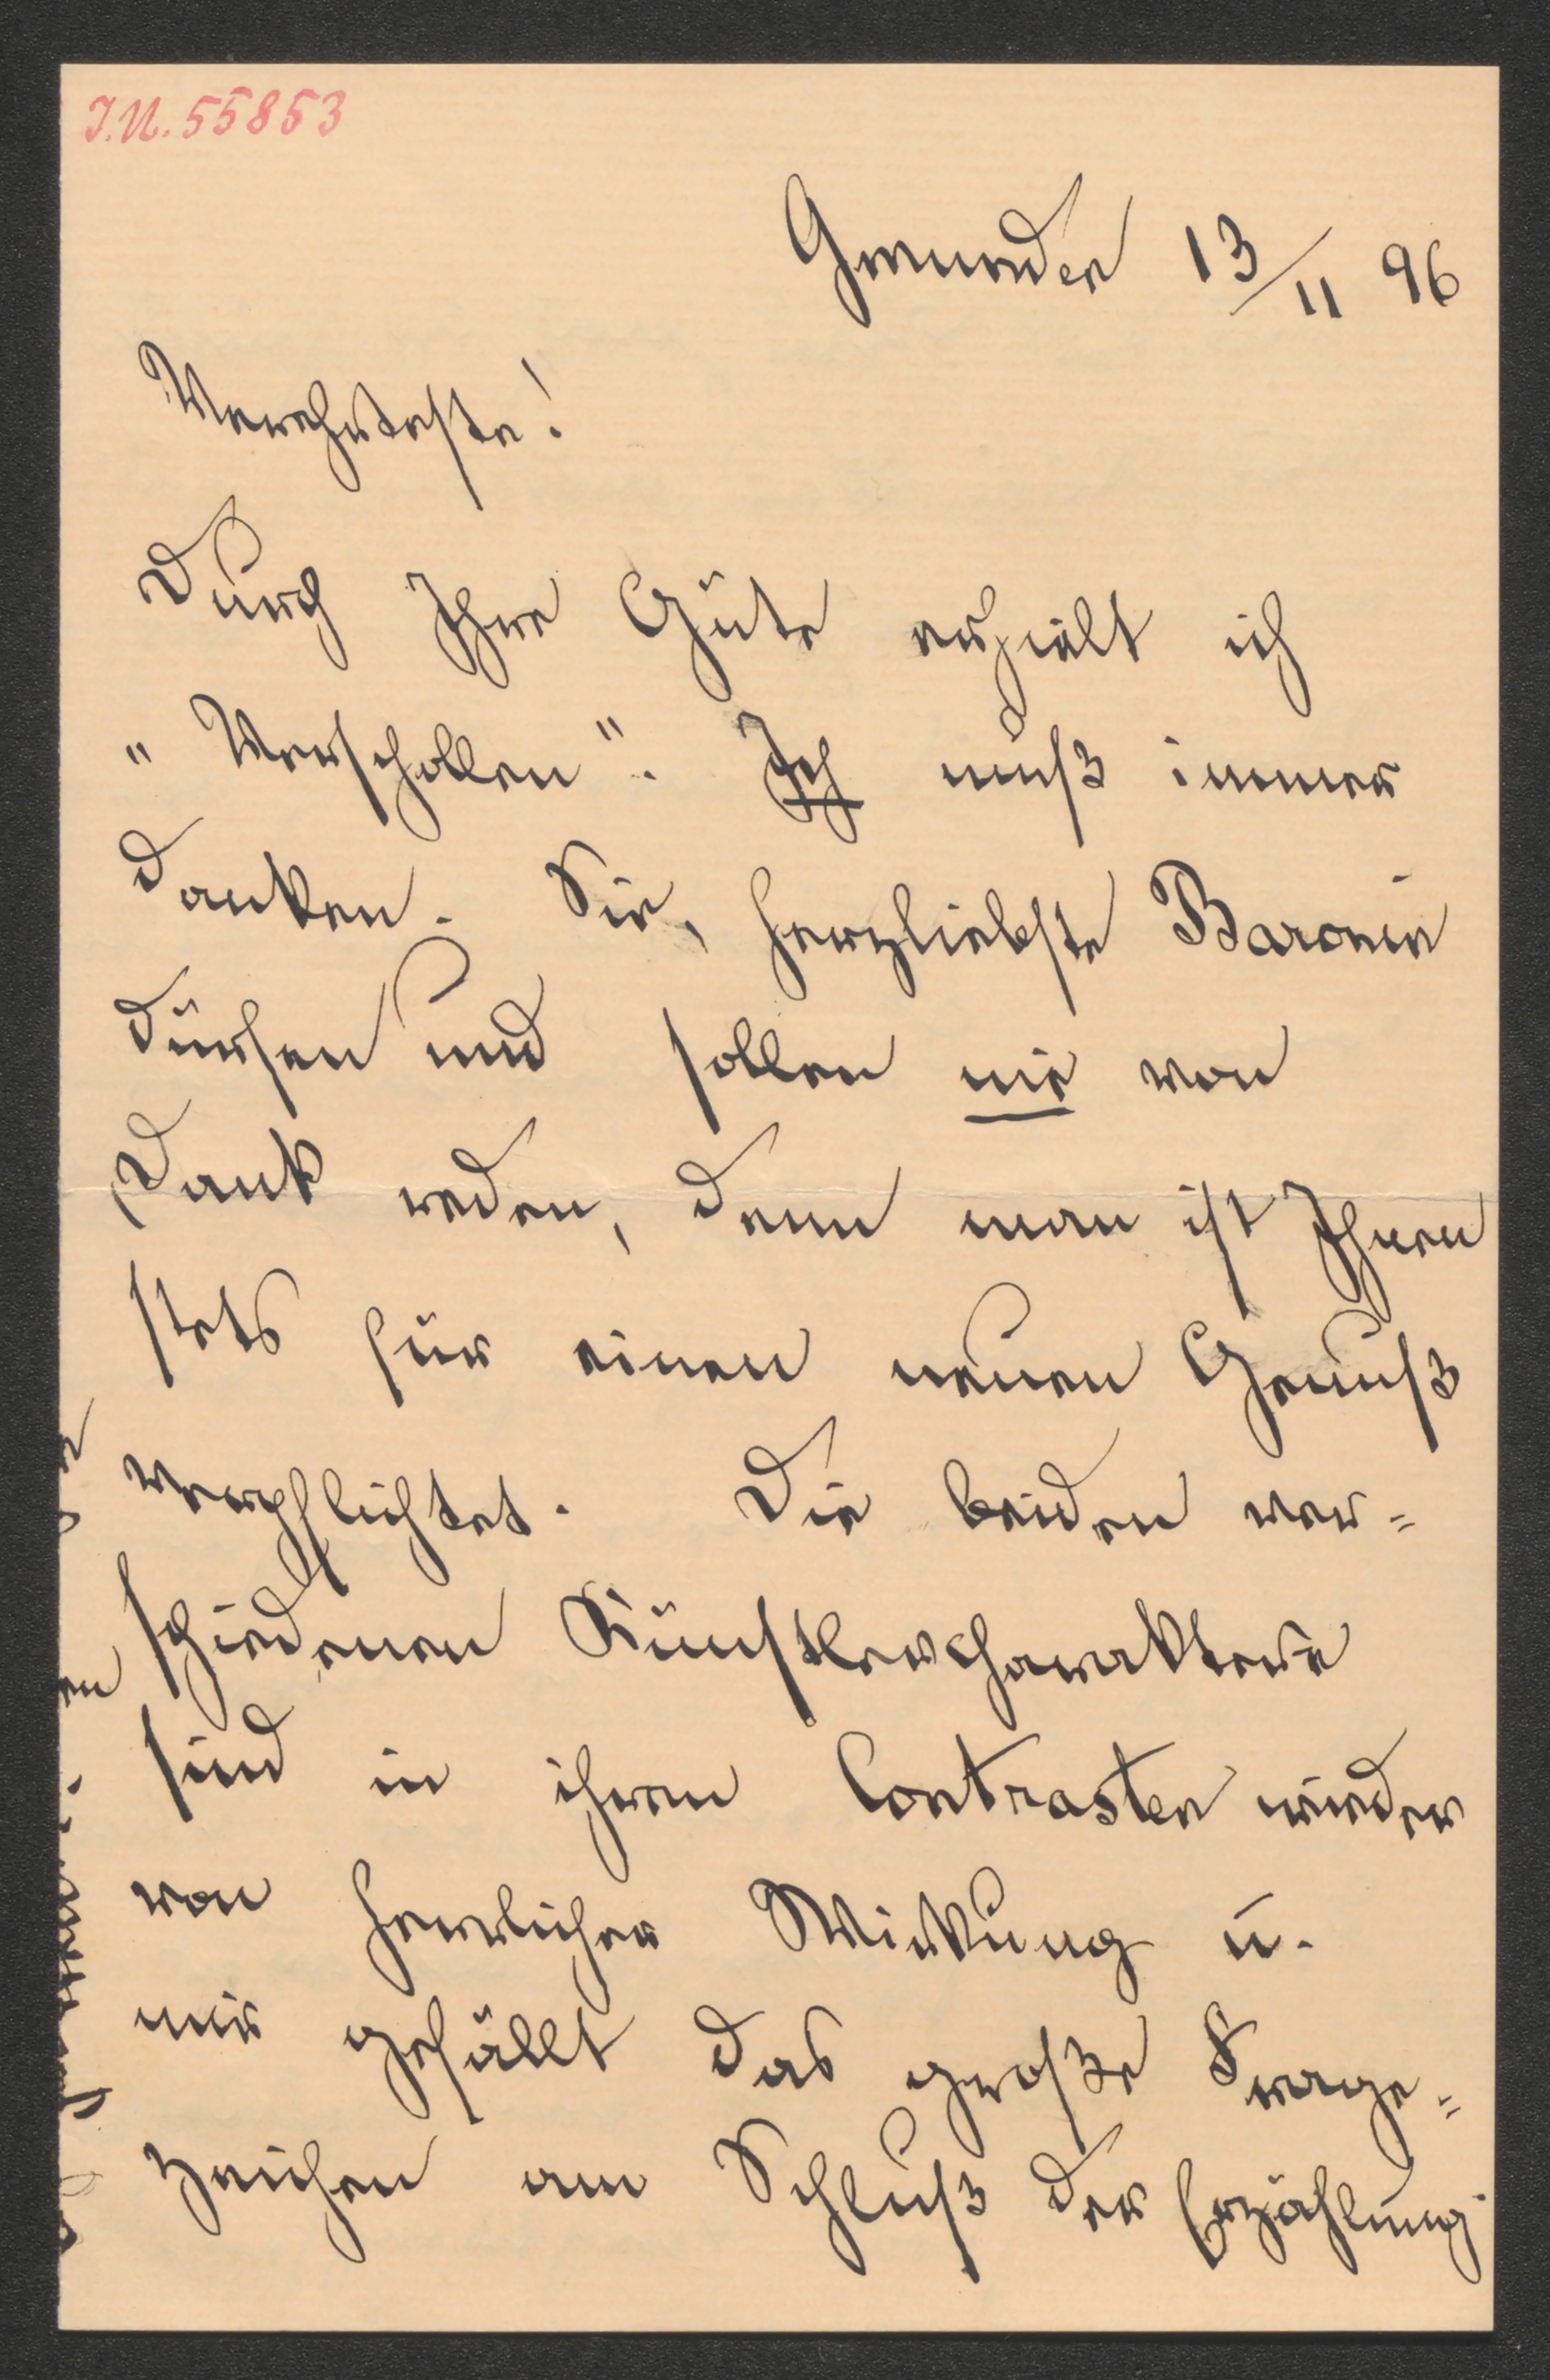 I.N. 55853
Gmunden 13/11 96
Verehrteste!
Durch Ihre Güte erhielt ich
„Verschollen". Ich muß immer
danken. Sie, herzliebste Baronin
dürfen und sollen nie von
Dank reden, denn man ist Ihnen
stets für einen neuen Genuß
verpflichtet. Die beiden ver=
schiedenen Künstlercharaktere
sind in ihren Contrasten wieder
von herrlicher Wirkung u.
mir gefällt das große Frage=
zeichen am Schluß der Erzählung.